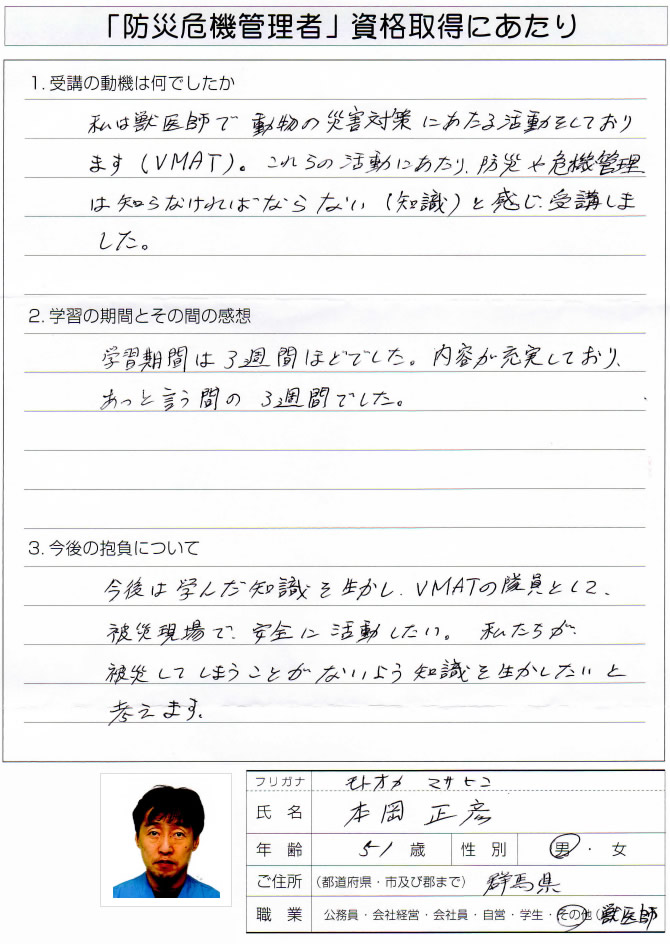 「防災危機管理者」資格取得にあたり
1. 受講の動機は何でしたか
私は獣医師で動物の災害対策にあたる活動をしており
ます(VMAT)。これらの活動にあたり、防災や危機管理
は知らなければならない(知識)と感じ、受講しま
した。
2. 学習の期間とその間の感想
学習期間は3週間ほどでした。内容が充実しており、
あっと言う間の3週間でした。
3. 今後の抱負について
今後は学んだ知識を生かし、VMATの隊員として、
被災現場で、安全に活動したい。私たちが、
被災してしまうことがないよう知識を生かしたいと
考えます。
フリガナ モトオカ マサヒコ
氏名 本岡 正彦
年齢 51歳 性別 男・女
ご住所 (都道府県・市及び郡まで) 群馬県
職業 公務員・会社経営・会社員・自営・学生・その他( 獣医師